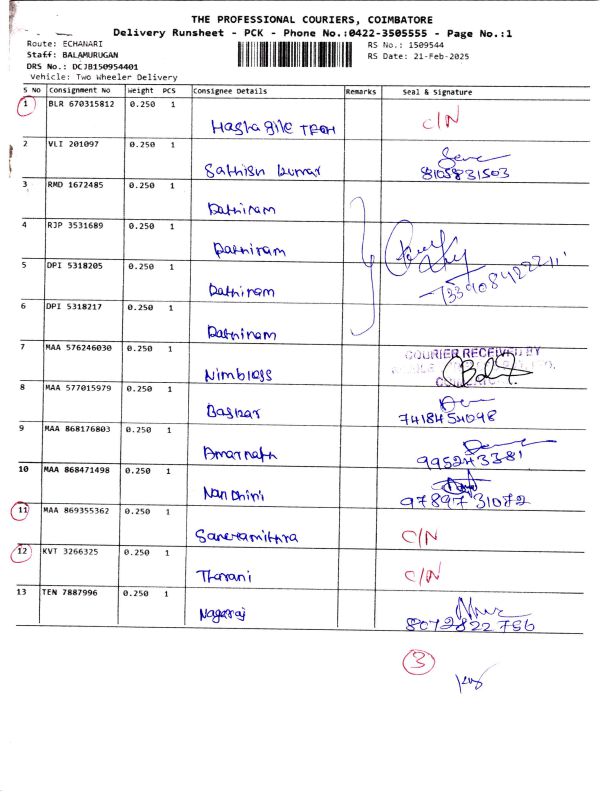 THE PROFESSIONAL COURIERS, COIMBATORE
Delivery Runsheet - PCK - Phone No.:0422-3505555 - Page No.:1
Route: ECHANARI
RS No.: 1509544
Staff: BALAMURUGAN
RS Date: 21-Feb-2025
DRS No.: DCJB150954401
Vehicle: Two Wheeler Delivery
S No Consignment No Weight PCS Consignee Details Remarks Seal & Signature
1 BLR 670315812 0.250 1
C/N
2 VLI 201097 0.250 1
Sathish kumar 8105831503
3 RMD 1672485 0.250 1
Dathiram
4 RJP 3531689 0.250 1
Dathiram
5 DPI 5318205 0.250 1
Dathiram
6 DPI 5318217 0.250 1
Dathiram
7 MAA 576246030 0.250 1
COURIER RECEIVED BY
Nimbless
8 MAA 577015979 0.250 1
Baskar 7418454098
9 MAA 868176803 0.250 1
Amarnath 995243381
10 MAA 868471498 0.250 1
Nandhini 9789731072
11 MAA 869355362 0.250 1
C/N
12 KVT 3266325 0.250 1
Tharani C/N
13 TEN 7887996 0.250 1
Nagaraj 8072822766
3